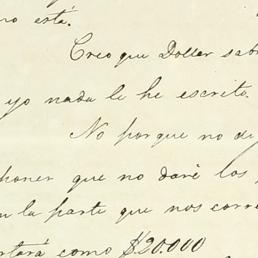 está.
Creo que Doller sab
yo nada le he escrito.
No porque no de
poner que no daré los
la parte que nos corr
como $20.000